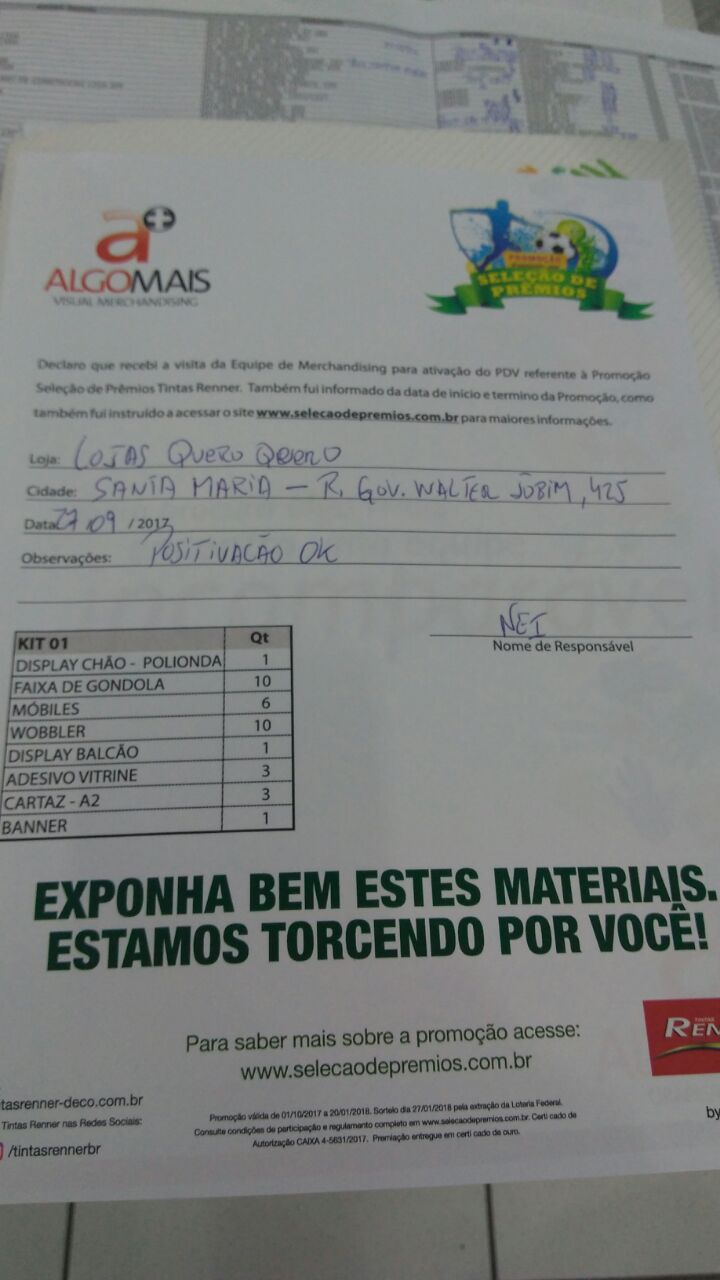 a+
ALGOMAIS
VISUAL MERCHANDISING
PROMOÇÃO
SELEÇÃO DE
PRÊMIOS
Declaro que recebi a visita da Equipe de Merchandising para ativação do PDV referente à Promoção
Seleção de Prêmios Tintas Renner. Também fui informado da data de inicio e termino da Promoção, como
também fui instruído a acessar o site www.selecaodepremios.com.br para maiores informações.
Loja: LOJAS QUERO QUERO
Cidade: SANTA MARIA - R. GOV. WALTER JOBIM, 425
Data 27/09 / 2017
Observações: POSITIVAÇÃO OK
NEI
Nome de Responsável
KIT 01 Qt
DISPLAY CHÃO - POLIONDA 1
FAIXA DE GONDOLA 10
MÓBILES 6
WOBBLER 10
DISPLAY BALCÃO 1
ADESIVO VITRINE 3
CARTAZ - A2 3
BANNER 1
EXPONHA BEM ESTES MATERIAIS.
ESTAMOS TORCENDO POR VOCÊ!
Para saber mais sobre a promoção acesse:
www.selecaodepremios.com.br
TINTAS
REN
tasrenner-deco.com.br
Tintas Renner nas Redes Sociais:
/tintasrennerbr
Promoção válida de 01/10/2017 a 20/01/2018. Sorteio dia 27/01/2018 pela extração da Loteria Federal.
Consulte condições de participação e regulamento completo em www.selecaodepremios.com.br. Certi cado de
Autorização CAIXA 4-5631/2017. Premiação entregue em certi cado de ouro.
by